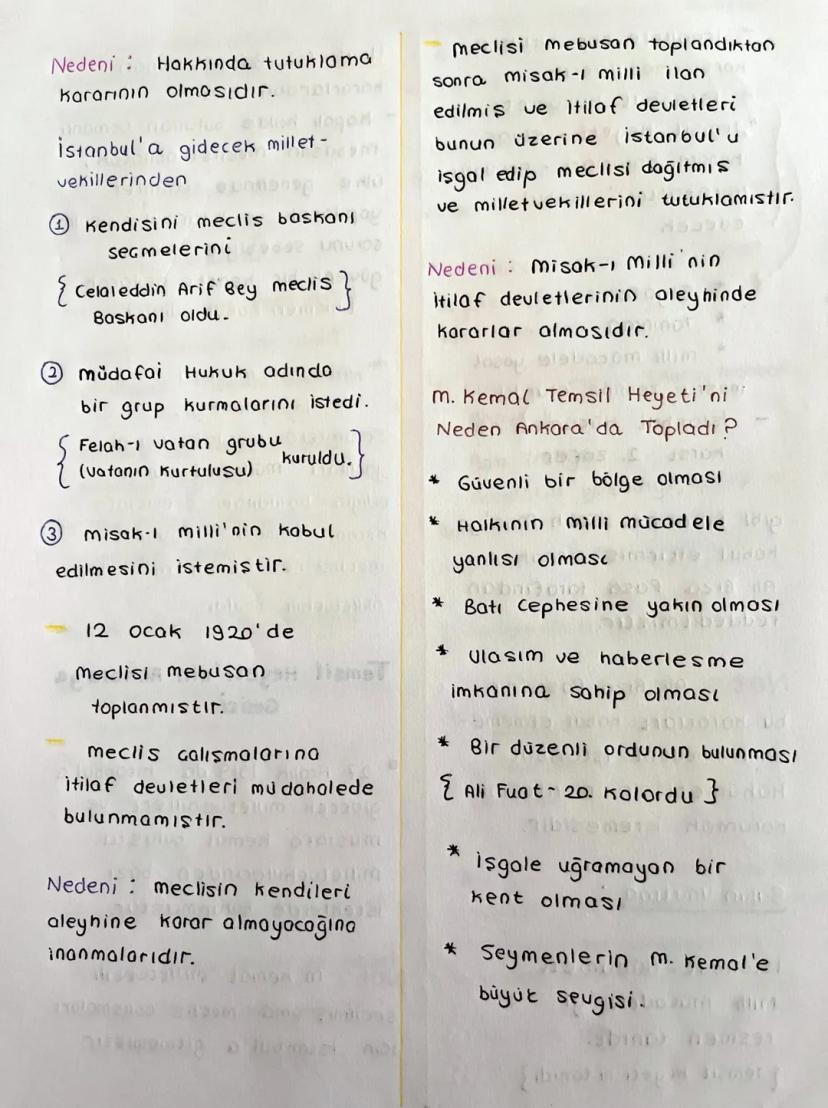 Nedeni : Hakkında tutuklama
kararının olmasıdır.
İstanbul'a gidecek millet-
vekillerinden
① Kendisini meclis baskanı
secmelerini
{ Celaleddin Arif Bey meclis
Baskanı oldu. }
② müdafai Hukuk adında
bir grup kurmalarını istedi.
{ Felah-ı vatan grubu
(vatanın Kurtulusu) kuruldu. }
③ misak-ı milli'nin kabul
edilmesini istemistir.
- 12 Ocak 1920'de
meclisi mebusan
toplanmıstır.
- meclis calısmalarına
itilaf devletleri müdahalede
bulunmamıstır.
Nedeni : meclisin kendileri
aleyhine karar almayacağına
inanmalarıdır.
- meclisi mebusan toplandıktan
sonra misak-ı milli ilan
edilmiş ve itilaf devletleri
bunun üzerine istanbul'u
işgal edip meclisi dağıtmıs
ve milletvekillerini tutuklamıstır.
Nedeni : Misak-ı Milli'nin
itilaf devletlerinin aleyhinde
kararlar almasıdır.
M. Kemal Temsil Heyeti'ni
Neden Ankara'da Topladı?
* Güvenli bir bölge olması
* Halkının milli mücadele
yanlısı olması
* Batı Cephesine yakın olması
* Ulasım ve haberlesme
imkanına sahip olması
* Bir düzenli ordunun bulunması
{ Ali Fuat - 20. Kolordu }
* işgale uğramayan bir
kent olması
* Seymenlerin M. Kemal'e
büyük sevgisi.